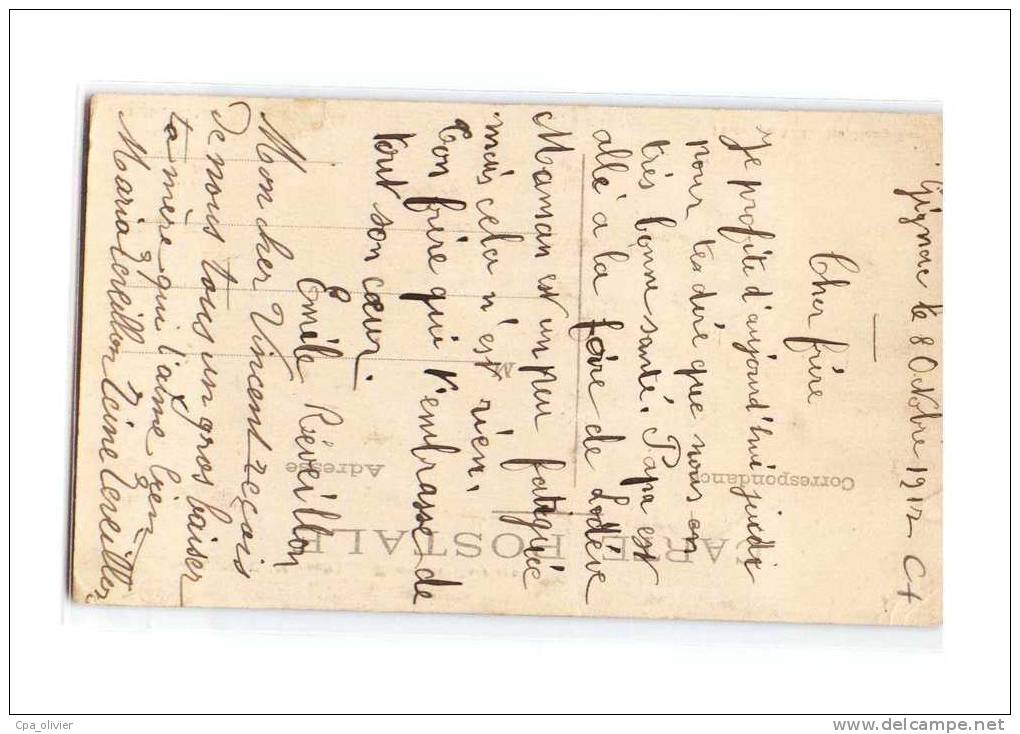 Gignac le 8 Octobre 1912
Cher frère
Je profite d'aujourd'hui jeudi
pour te dire que nous en
très bonne santé. Papa est
allé a la foire de Lodève
Maman est un peu fatiguée
mais cela n'est rien.
Ton frère qui t'embrasse de
tout son cœur.
Emile Réveillon
Mon cher Vincent reçois
de nous tous un gros baiser
ta mère qui t'aime bien
Maria Reveillon
CARTE POSTALE
Correspondance
Adresse
M
Cpa_olivier
www.delcampe.net